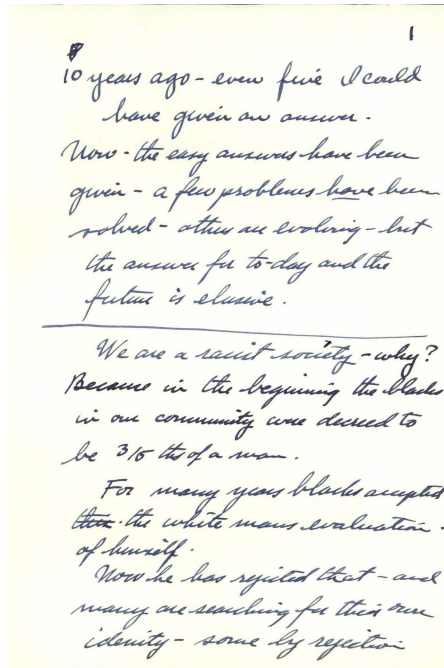 1
10 years ago - even five I could
have given an answer.
Now - the easy answers have been
given - a few problems have been
solved - others are evolving - but
the answer for to-day and the
future is elusive.
We are a racist society - why?
Because in the beginning the blacks
in our community were decreed to
be 3/5 ths of a man.
For many years blacks accepted
the white mans evaluation
of himself.
Now he has rejected that - and
many are searching for their own
idenity - some by rejection